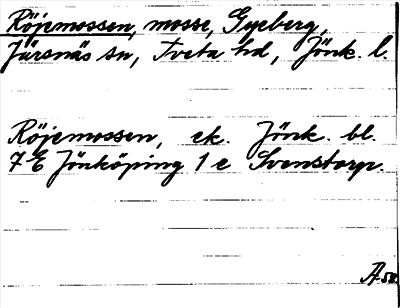 Röjemossen, mosse, Gyeberg,
Järsnäs sn, Tveta hd, Jönk. l.
Röjemossen, ek. Jönk. bl.
7 E Jönköping 1 e Svenstorp.